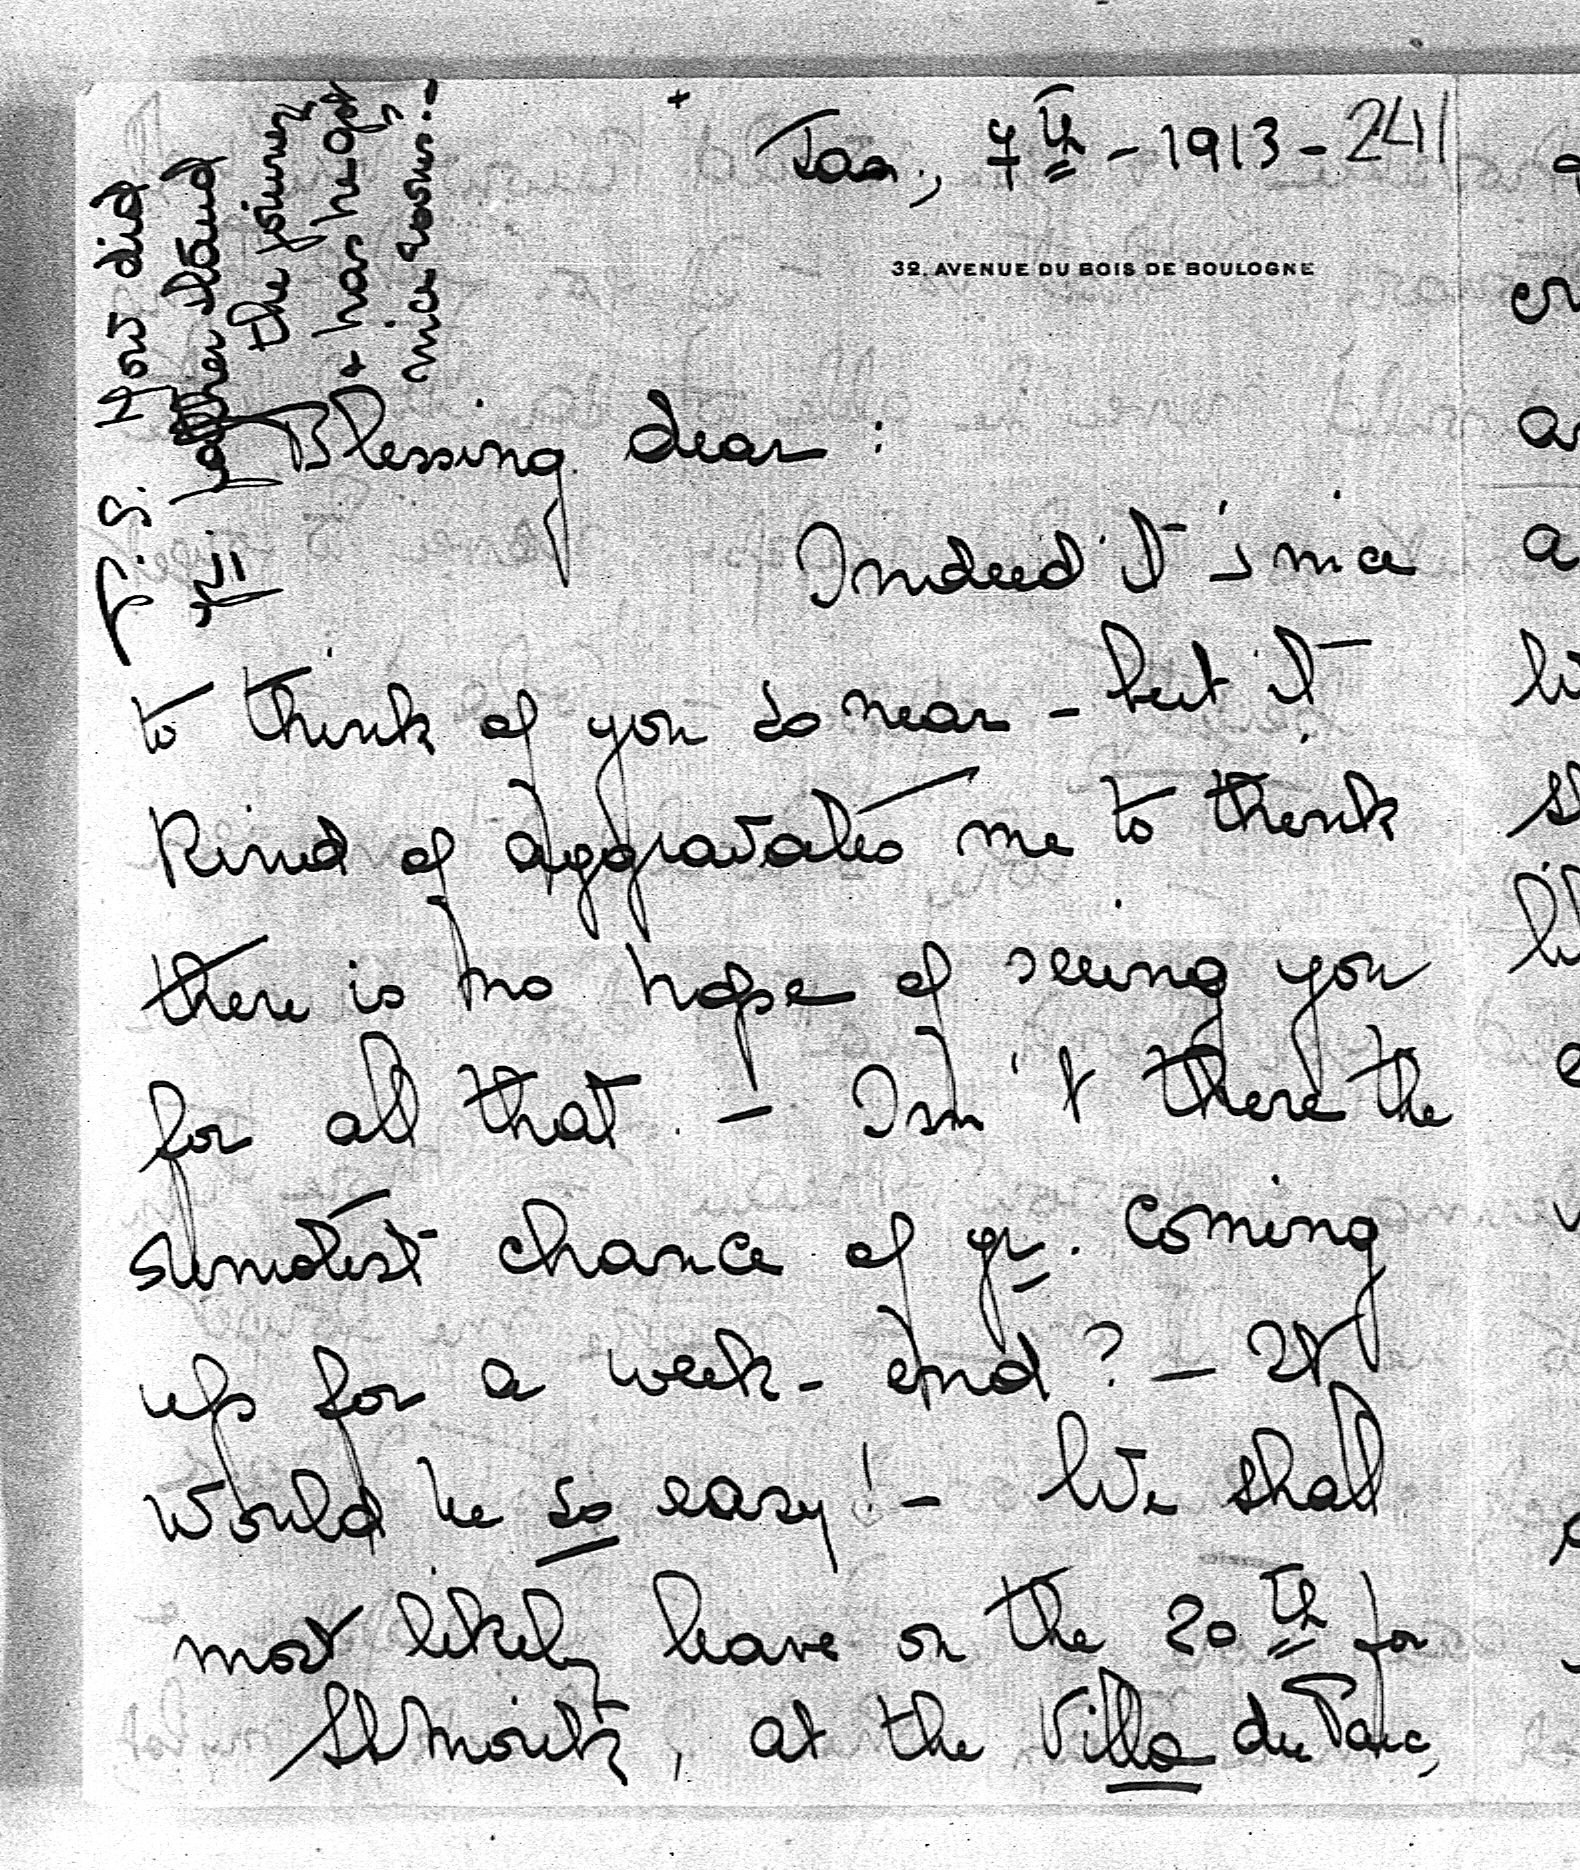 Jan., 7th - 1913 - 241
32, AVENUE DU BOIS DE BOULOGNE
Blessing dear :
Indeed it's nice
to think of you so near - but it
kind of aggravates me to think
there is no hope of seeing you
for all that. - Isn't there the
slimstest chance of yr. coming
up for a week-end? - It
would be so easy! - We shall
most likely leave on the 20th for
St Moritz, at the Villa du Parc,
P. S. How did
father stand
the journey
& has he got
nice rooms!